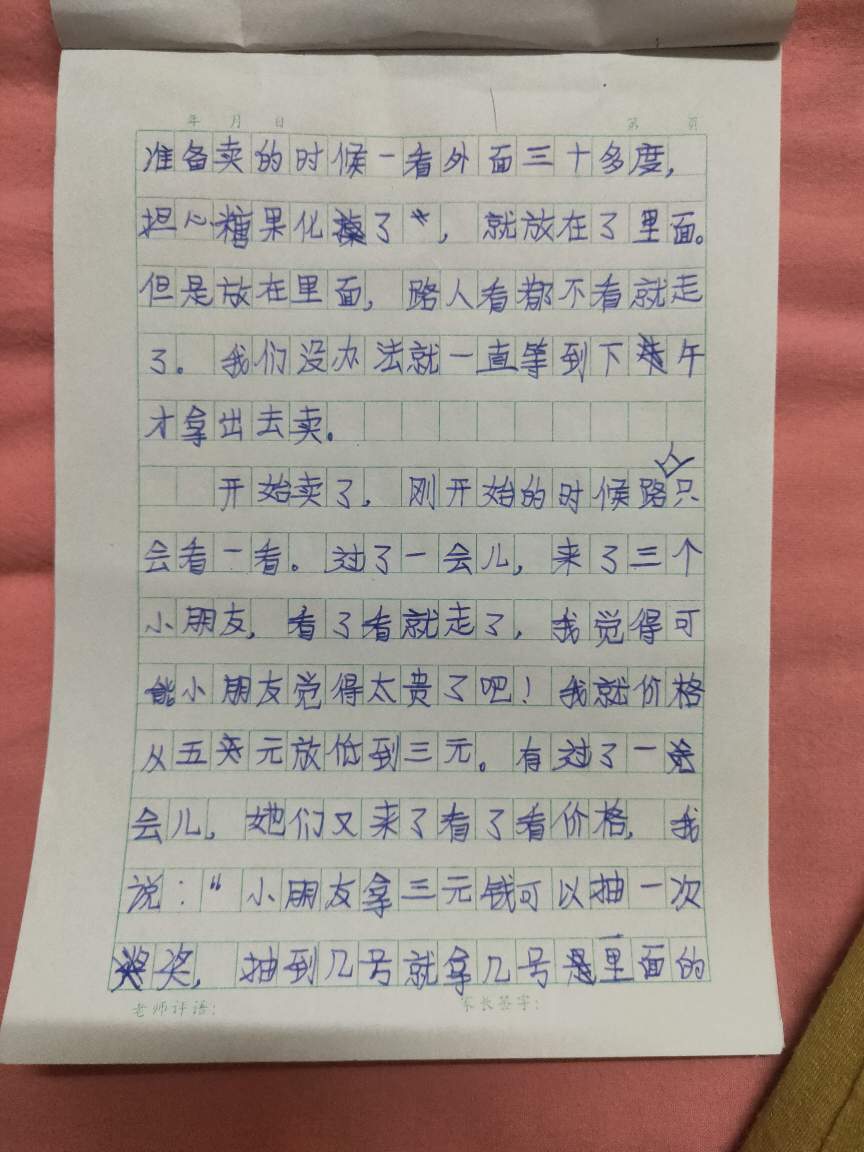 年 月 日 第 页
准备卖的时候一看外面三十多度，
担心糖果化了，就放在了里面。
但是放在里面，路人看都不看就走
了。我们没办法就一直等到下午
才拿出去卖。
开始卖了，刚开始的时候路人只
会看一看。过了一会儿，来了三个
小朋友，看了看就走了，我觉得可
能小朋友觉得太贵了吧！我就价格
从五元放低到三元。有过了一
会儿，她们又来了看了看价格，我
说：“小朋友拿三元钱可以抽一次
奖，抽到几号就拿几号里面的
老师评语： 家长签字：